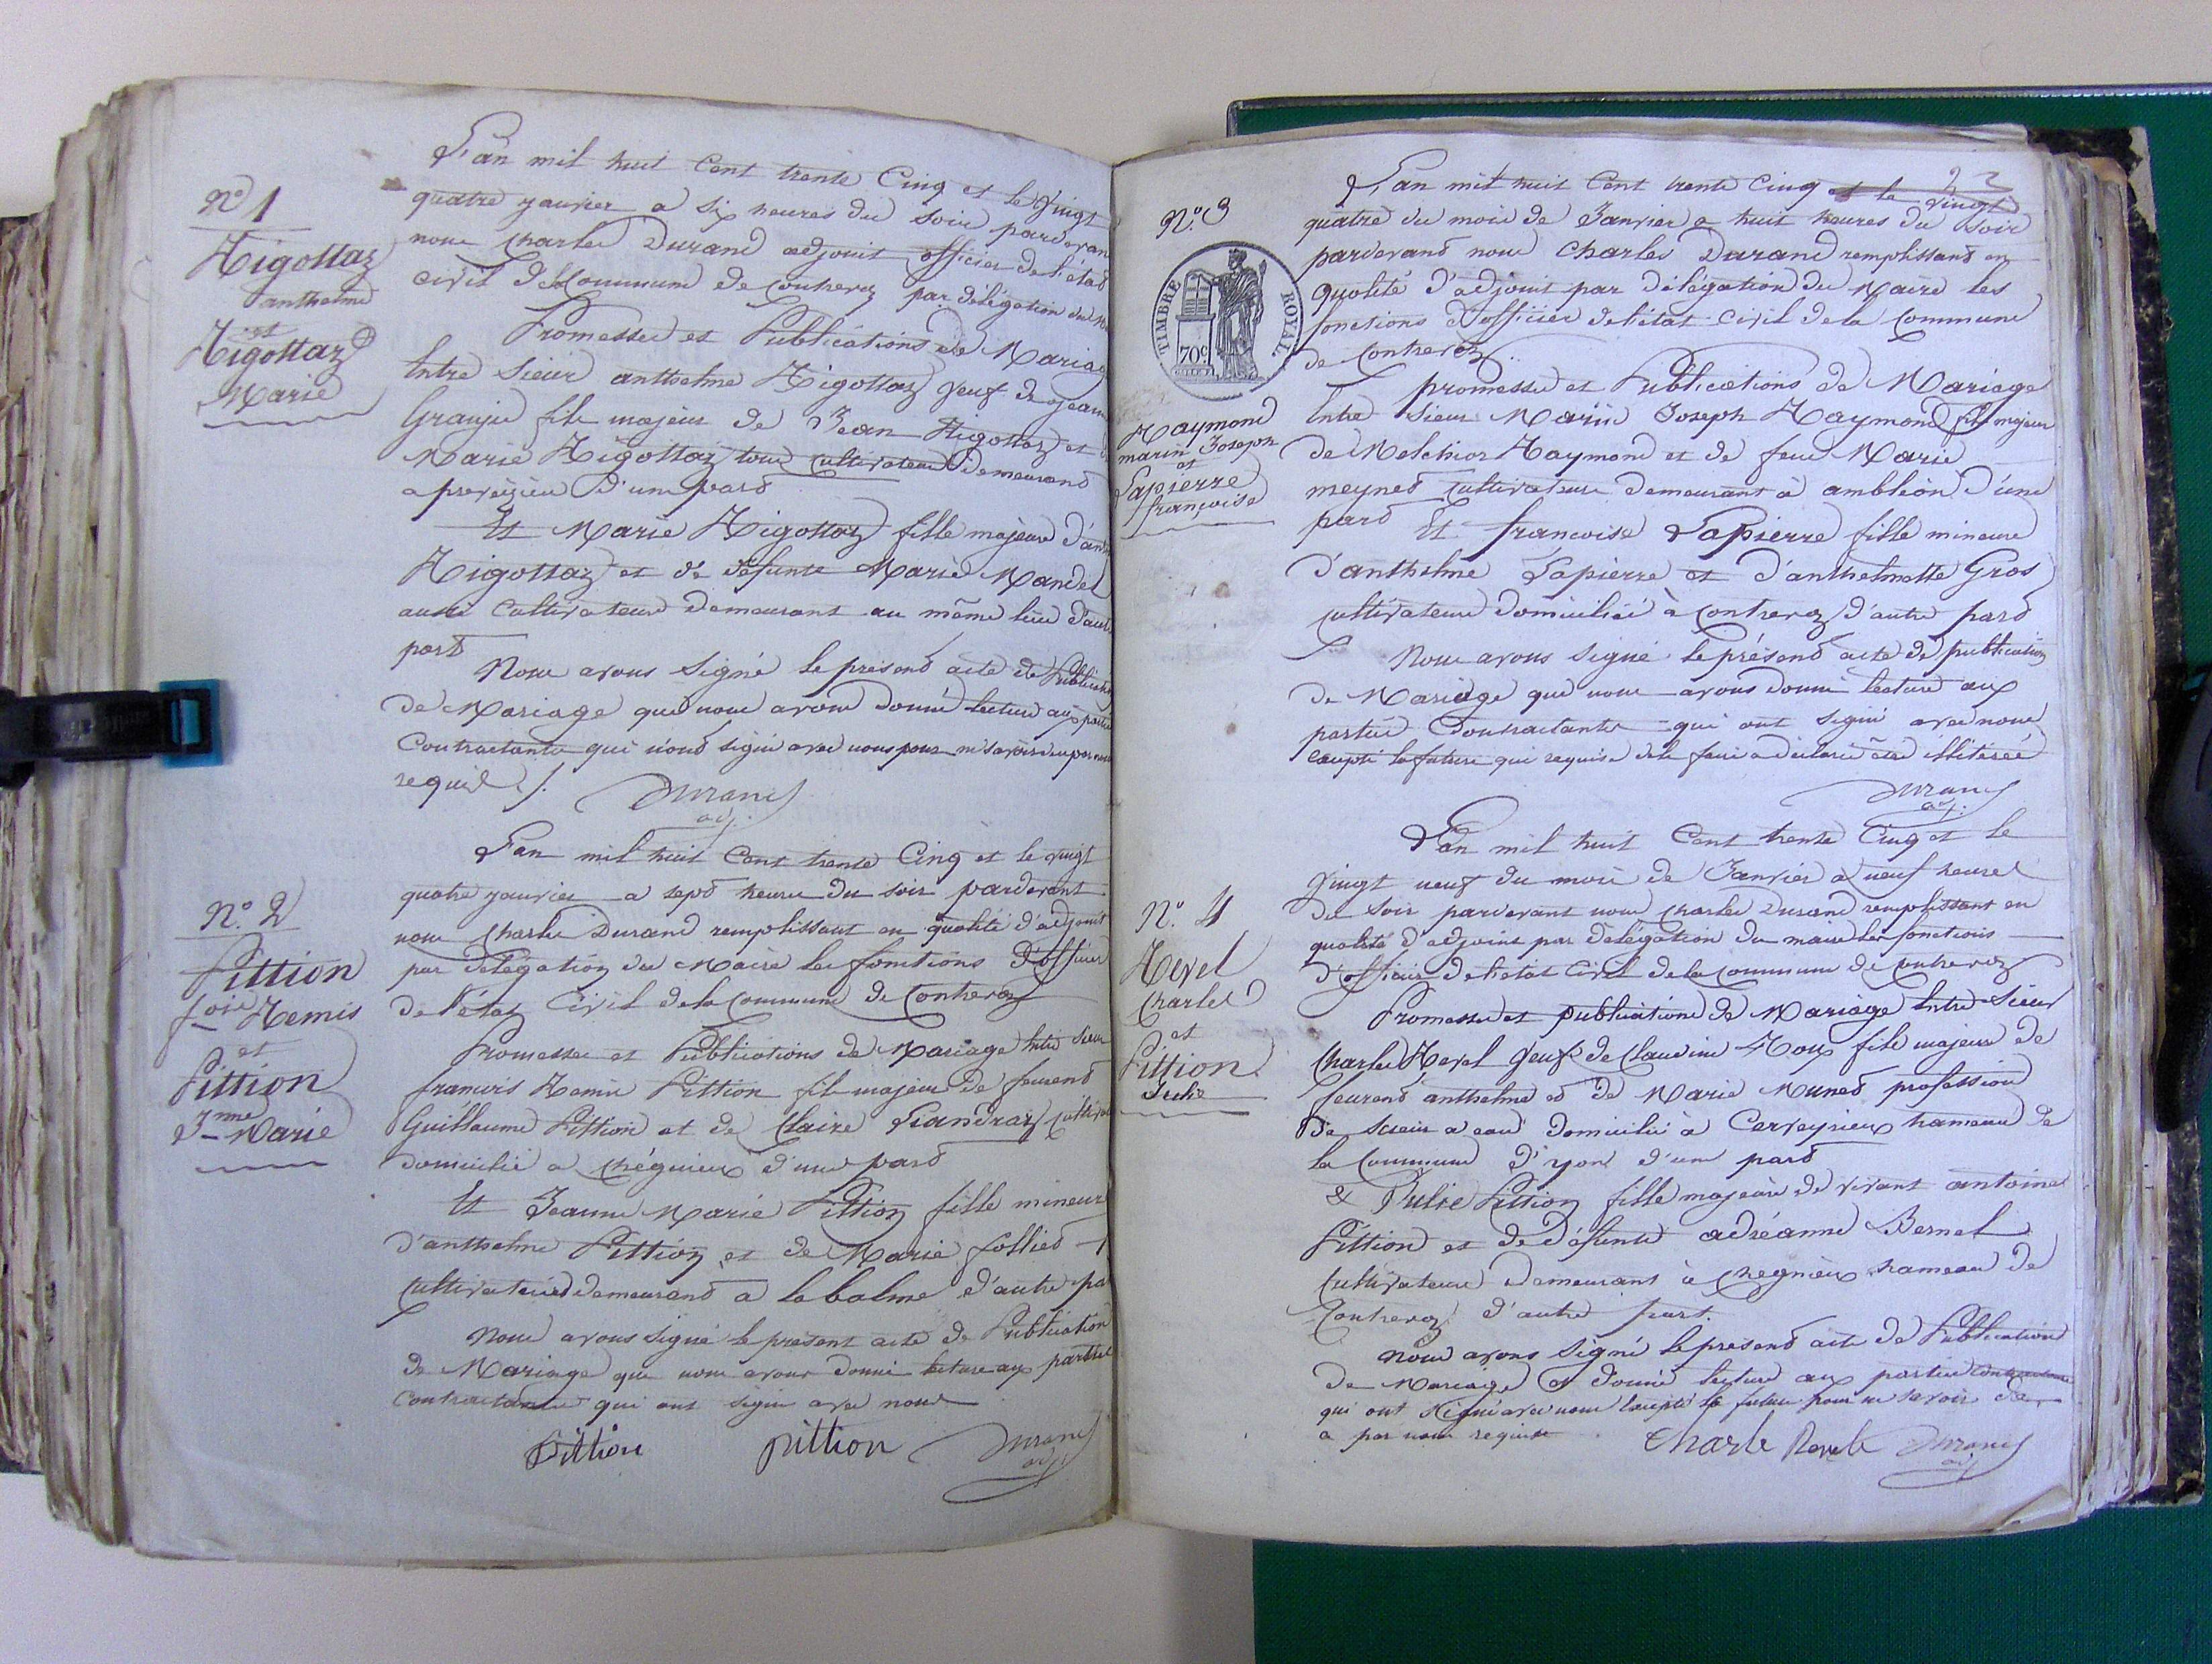 N.o 1
Rigottaz
anthelme
et
Rigottaz
Marie
L'an mil huit Cent trente Cinq et le vingt
quatre janvier a six heures du soir pardevan
nous Charles Durand adjoint officier de l'état
civil de la Commune de Contrevoz par délégation du
Promesses et Publications de Mariag
Entre Sieur anthelme Rigottaz veuf de jeann
Granju fils majeur de Jean Rigottaz et
Marie Rigottaz tous cultivateurs demeurand
a d'une pard
Et Marie Rigottaz fille majeure
Rigottaz et de défunte Marie Mandel
aussi Cultivateurs demeurant au même lieu d'aut
part
Nous avons signé le présend acte de Publication
de Mariage que nous avons donné lecture aux parties
Contractantes qui n'ond signé avec nous pour ne savoir
requis ./.
Durand
adj.
N.o 2
Pittion
fois Remis
et
Pittion
Jnne Marie
L'an mil huit Cent trente Cinq et le vingt
quatre janvier a sepd heures du soir pardevant
nous Charles Durand remplissant en qualité d'adjoint
par délégation du Maire les fonctions d'officier
de l'état Civil de la Commune de Contrevoz
Promesses et Publications de Mariage Entre Sieur
francois Remis Pittion fils majeur de feurend
Guillaume Pittion et de Claire Viandraz Cultivat
domicilié a Chégnieux d'une pard
Et Jeanne Marie Pittion fille mineure
d'anthelme Pittion et de Marie follied
Cultivateurs demeurand a la balme d'autre pa
Nous avons signé le présent acte de Publication
de Mariage que nous avons donné lecture aux parties
Contractantes qui ont signé avec nous
Pittion pittion Durand
adj
23
N.o 3
TIMBRE ROYAL
70c
Raymond
marin Joseph
et
Lapierre
françoise
L'an mil huit Cent trente cinq et le vingt
quatre du mois de Janvier a huit heures du soir
pardevand nous Charles Durand remplissand en
qualité d'adjoint par délégation du Maire les
fonctions d'officier de l'état civil de la Commune
de Contrevoz
promesses et Publications de Mariage
Entre sieur Marin Joseph Raymond fils majeur
de Melchior Raymond et de feue Marie
meyned cultivateurs demeurant à ambléon d'une
pard Et francoise Lapierre fille mineure
d'anthelme Lapierre et d'anthelmette Gros
cultivateurs domiciliés à Contrevoz d'autre pard
Nous avons signé le présend acte de publication
de Mariage que nous avons donné lecture aux
parties Contractantes qui ont signé avec nous
excepté la future qui requise de le faire a déclaré être illitérée
Durand
adj.
N.o 4
Revel
Charles
et
Pittion
Julie
L'an mil huit Cent trente Cinq et le
Vingt neuf du mois de Janvier a neuf heures
du soir pardevant nous Charles Durand remplissant en
qualité d'adjoint par délégation du maire les fonctions
d'officier de l'état Civil de la Commune de Contrevoz
Promesses et publications de Mariage Entre Sieur
Charles Revel veuf de Claudine Roux fils majeur de
feurend anthelme ed de Marie Muned profession
de scieur a eau domicilié à Cerveyrieux hameau de
la Commune d'yon d'une pard
& Julie Pittion fille majeure de vivant antoine
Pittion et de défunte adréanne Bernel
Cultivateurs demeurans à Chegnieux hameau de
Contrevoz d'autre part.
Nous avons signé le présend acte de Publication
de Mariage et donné lecture aux parties Contractantes
qui ont signé avec nous excepté la future pour ne savoir de
a par nous requise
Charle Revele Durand
adj